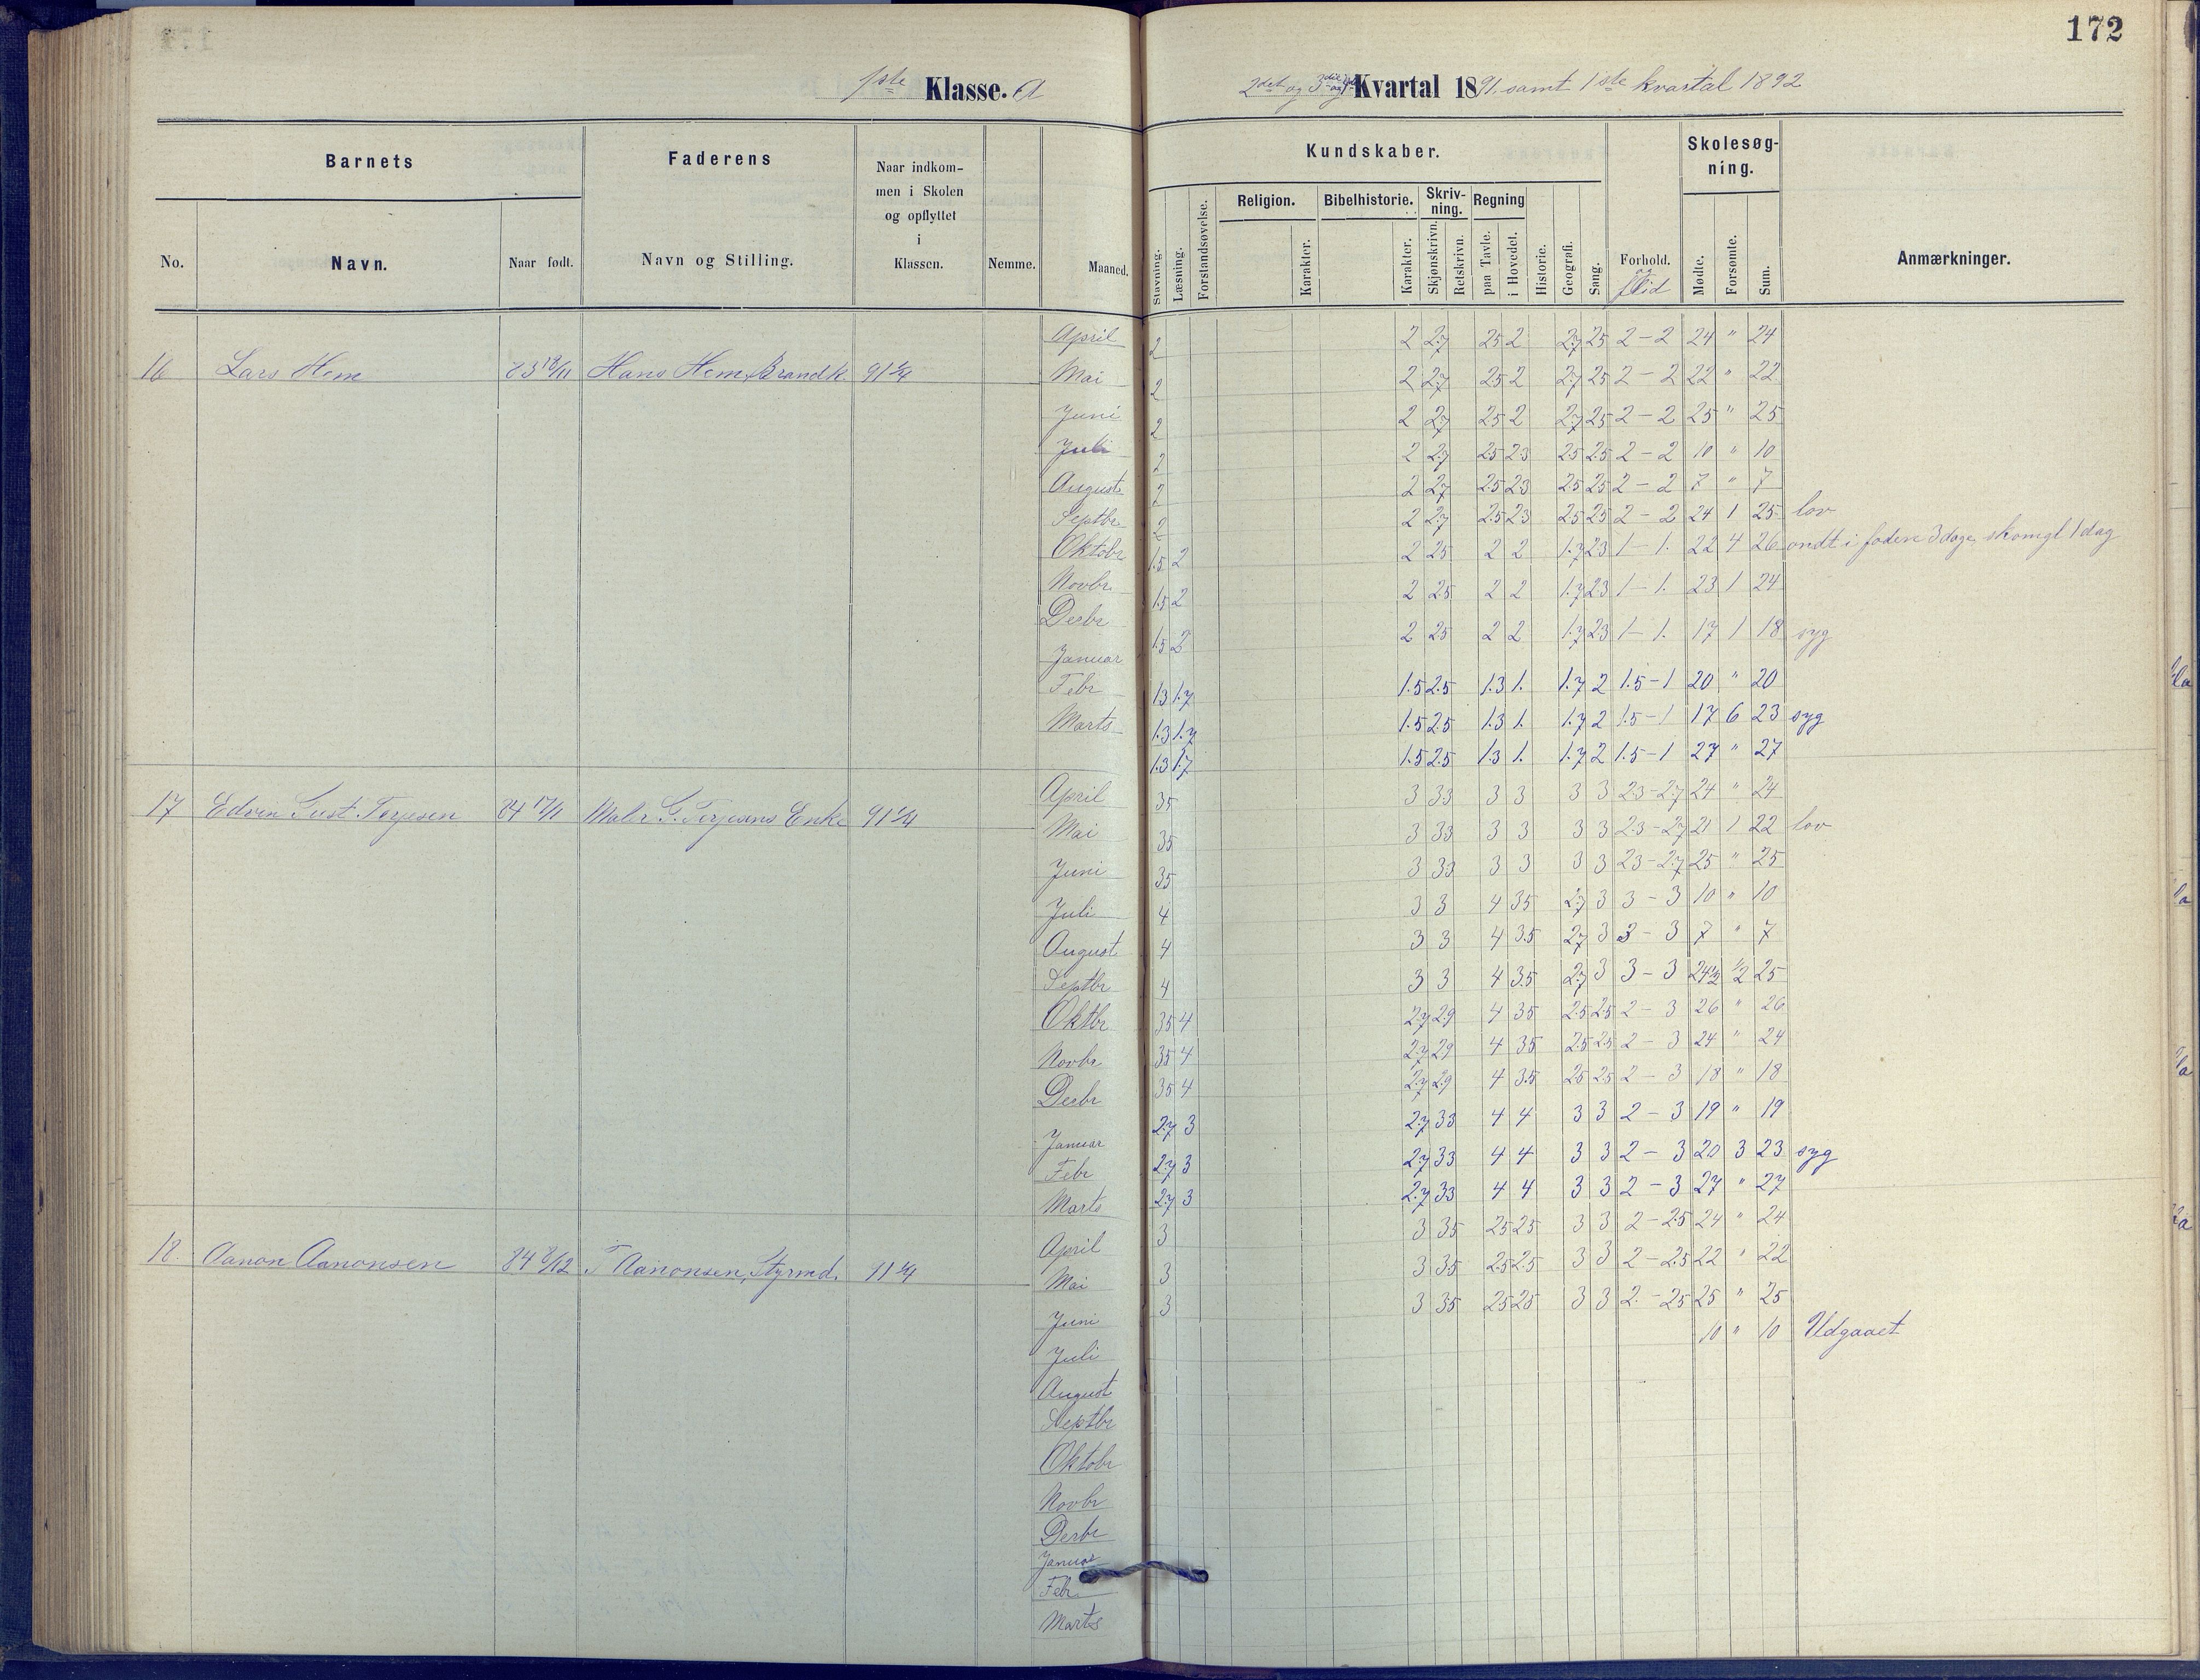 172
1ste Klasse. A
2det og 3die og 4de Kvartal 1891. samt 1ste kvartal 1892
Barnets Faderens Naar indkommen i Skolen og opflyttet i Klassen. Nemme. Maaned.
No. Navn. Naar født. Navn og Stilling.
Kundskaber. Skolesøgning.
Stavning. Læsning. Forstandsøvelse. Religion. Karakter. Bibelhistorie. Karakter. Skrivning. Skjønskrivn. Retskrivn. Regning paa Tavle. i Hovedet. Historie. Geografi. Sang. Forhold. Flid Mødte. Forsømte. Sum. Anmærkninger.
April 2 2 2.7 2.5 2 2.7 2.5 2 - 2 24 " 24
16 Lars Hem 83 Hans Hem, Brandk. 91 Mai 2 2 2.7 2.5 2 2.7 2.5 2 - 2 22 " 22
Juni 2 2 2.7 2.5 2 2.7 2.5 2 - 2 25 " 25
Juli 2 2 2.7 2.5 2.3 2.5 2.5 2 - 2 10 " 10
August 2 2 2.7 2.5 2.3 2.5 2.5 2 - 2 7 " 7
Septbr 2 2 2.7 2.5 2.3 2.5 2.5 2 - 2 24 1 25 lov
Oktobr 1.5 2 2 2.5 2 2 1.7 2.3 1 - 1. 22 4 26 ondt i foden 3 dage, skomgl 1 dag
Novbr. 1.5 2 2 2.5 2 2 1.7 2.3 1 - 1. 23 1 24
Decbr 1.5 2 2 2.5 2 2 1.7 2.3 1 - 1. 17 1 18 syg
Januar 1.3 1.7 1.5 2.5 1.3 1. 1.7 2 1.5 - 1 20 " 20
Febr 1.3 1.7 1.5 2.5 1.3 1. 1.7 2 1.5 - 1 17 6 23 syg
Marts 1.3 1.7 1.5 2.5 1.3 1. 1.7 2 1.5 - 1 27 " 27
April 3.5 3 3.3 3 3 3 3 2.3 - 2.7 24 " 24
17 Edvin Gust. Terjesen 84 17/1 Maler G. Terjesens Enke 91 Mai 3.5 3 3.3 3 3 3 3 2.3 - 2.7 21 1 22 lov
Juni 3.5 3 3.3 3 3 3 3 2.3 - 2.7 25 " 25
Juli 4 3 3 4 3.5 2.7 3 3 - 3 10 " 10
August 4 3 3 4 3.5 2.7 3 3 - 3 7 " 7
Septbr 4 3 3 4 3.5 2.7 3 3 - 3 24½ ½ 25
Oktbr 3.5 4 2.7 2.9 4 3.5 2.5 2.5 2 - 3 26 " 26
Novbr 3.5 4 2.7 2.9 4 3.5 2.5 2.5 2 - 3 24 " 24
Decbr 3.5 4 2.7 2.9 4 3.5 2.5 2.5 2 - 3 18 " 18
Januar 2.7 3 2.7 3.3 4 4 3 3 2 - 3 19 " 19
Febr 2.7 3 2.7 3.3 4 4 3 3 2 - 3 20 3 23 syg
Marts 2.7 3 2.7 3.3 4 4 3 3 2 - 3 27 " 27
April 3 3 3.5 2.5 2.5 3 3 2 - 2.5 24 " 24
18. Aanon Aanonsen 84 T Aanonsen, Styrmd. 91 Mai 3 3 3.5 2.5 2.5 3 3 2 - 2.5 22 " 22
Juni 3 3 3.5 2.5 2.5 3 3 2. - 2.5 25 " 25
Juli 10 " 10 Udgaaet
August
Septbr
Oktobr
Novbr
Decbr
Januar
Febr
Marts